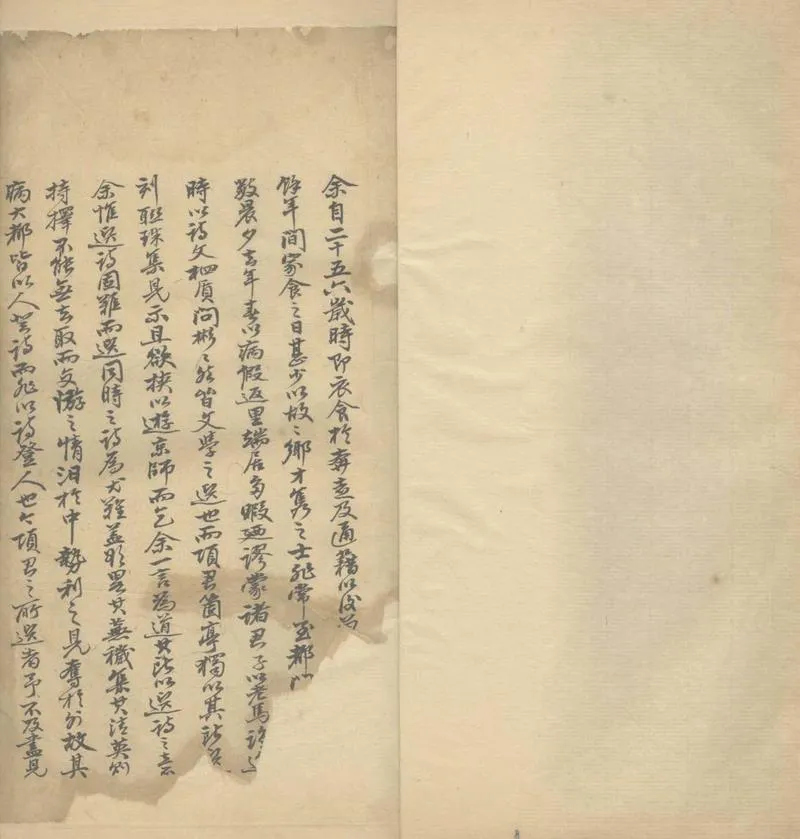 余自二十五六歲時即衣食於奔走及通籍以後六
餘年間家食之日甚少以故之鄉才雋之士非常至都門
敢晨夕去年春以病假返里端居多暇廼謬蒙諸君子以老馬
時以詩文相質問彬之然皆文學之選也而項君箇亭獨以其所
刻聯珠集見示且欲挾以遊京師而乞余一言為道其所以選詩之意
余惟選詩固難而選同時之詩為尤難蓋明異其蕪穢集其清英則
持擇不能無去取而交遊之情汨於中勢利之見奪於外故其
病大都皆以人登詩而非以詩登人也今項君之所選者予不及盡見